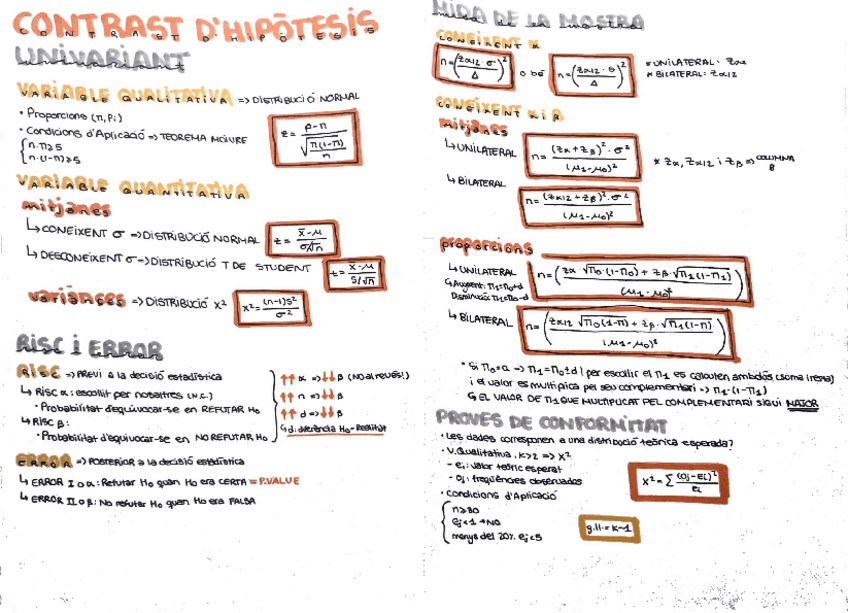 CONTRAST D'HIPÒTESIS
UNIVARIANT
VARIABLE QUALITATIVA => DISTRIBUCIÓ NORMAL
• Proporcions (π, Pi)
• Condicions d'Aplicació => TEOREMA MOIVRE
{ n·π≥5
n·(1-π)≥5
z = p-π / √(π(1-π)/n)
VARIABLE QUANTITATIVA
mitjanes
↳ CONEIXENT σ => DISTRIBUCIÓ NORMAL z = x̄-μ / σ/√n
↳ DESCONEIXENT σ -> DISTRIBUCIÓ T DE STUDENT t = x̄-μ / S/√n
variànces => DISTRIBUCIÓ X² X² = (n-1)S² / σ²
RISC i ERROR
RISC => PREVI a la decisió estadística
↳ RISC α: escollit per nosaltres (N.C.)
• Probabilitat d'equivocar-se en REFUTAR H₀
↳ RISC β:
• Probabilitat d'equivocar-se en NO REFUTAR H₀
↑↑ α => ↓↓ β (NO al revés!)
↑↑ n => ↓↓ β
↑↑ d => ↓↓ β
↳ d: diferència H₀-Realitat
ERROR => POSTERIOR a la decisió estadística
↳ ERROR I o α: Refutar H₀ quan H₀ era CERTA = P.VALUE
↳ ERROR II o β: No refutar H₀ quan H₀ era FALSA
MIDA DE LA MOSTRA
CONEIXENT α
n = (zα/2 · σ / Δ)² o bé n = (zα/2 · S / Δ)²
* UNILATERAL: zα
* BILATERAL: zα/2
CONEIXENT α i β
mitjanes
↳ UNILATERAL n = (zα + zβ)² · σ² / (μ₁ - μ₀)²
* zα, zα/2 i zβ => COLUMNA B
↳ BILATERAL n = (zα/2 + zβ)² · σ² / (μ₁ - μ₀)²
proporcions
↳ UNILATERAL n = (zα · √π₀·(1-π₀) + zβ · √π₁(1-π₁) / (μ₁ - μ₀)²)
↳ Augment: π₁=π₀+d
Disminució: π₁=π₀-d
↳ BILATERAL n = (zα/2 √π₀(1-π) + zβ · √π₁(1-π) / (μ₁ - μ₀)²)
• Si π₀=a => π₁=π₀±d | per escollir el π₁ es calculen ambdós (suma i resta)
i el valor es multiplica pel seu complementari => π₁·(1-π₁)
↳ EL VALOR DE π₁ QUE MULTIPLICAT PEL COMPLEMENTARI SIGUI MAJOR
PROVES DE CONFORMITAT
• Les dades corresponen a una distribució teòrica esperada?
• V. Qualitativa, k>2 => X²
- ei: valor teòric esperat
- oj: freqüències observades
X² = Σ (Oj-Ei)² / Ei
• Condicions d'Aplicació
{ n≥30
ej<1 → NO
menys del 20% ej<5
g.ll. = k-1